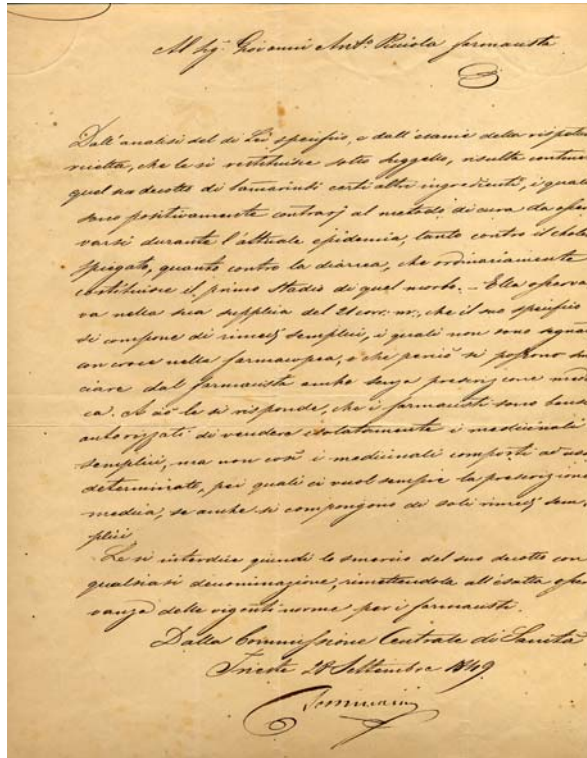 Al Sig. Giovanni Ant.o farmacista
Dall'analisi del di Lei specifico, e dall'esame della rispett
ricetta, che le si restituisce sotto suggello, risulta contene
quel suo decotto di tamarindi certi altri ingredienti, i quali
sono positivamente contrarj al metodo di cura da osser
varsi durante l'attuale epidemia, tanto contro il chole
spiegato, quanto contro la diarrea, che ordinariamente
costituisce il primo stadio di quel morbo. – Ella osserva
va nella sua supplica del 21 corr. m., che il suo specifico
si compone di rimedj semplici, i quali non sono segna
con croce nella farmacopea, e che perciò si possono
ciare dal farmacista anche senza prescrizione medi
ca. A ciò le si risponde, che i farmacisti sono bensì
autorizzati di vendere isolatamente i medicinali
semplici, ma non così i medicinali composti ad uso
determinato, pei quali ci vuol sempre la prescrizione
medica, se anche si compongono di soli rimedj sem
plici.
Le si interdice quindi lo smercio del suo decotto con
qualsiasi denominazione, rimettendola all'esatta osser
vanza delle vigenti norme per i farmacisti.
Dalla Commissione Centrale di Sanità
Trieste 28 Settembre 1849.